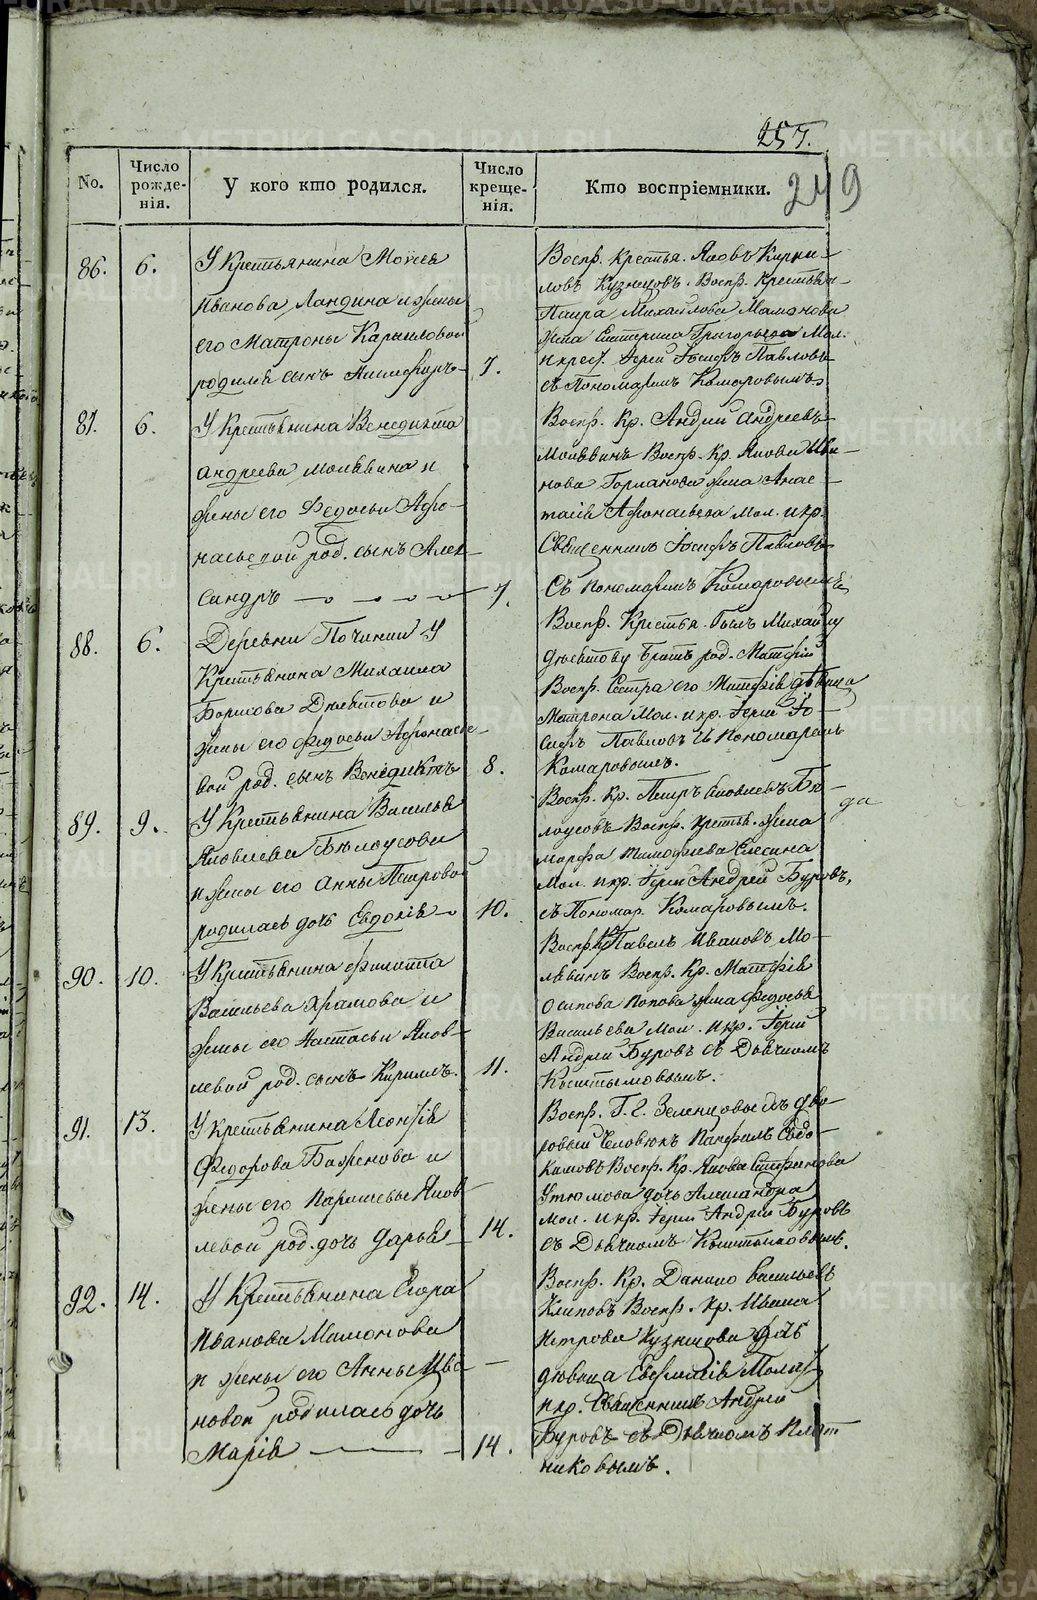 METRIKI.GASO-URAL.RU
257.
249
No.
Число рожденія.
У кого кто родился.
Число крещенія.
Кто воспріемники.
86. 6.
У Крестьянина Моисея
Иванова Ландина и жены
его Матроны Карниловой
родился сынъ 7.
Воспр. Крестья. Яковъ Карни-
ловъ Кузнецовъ. Воспр. Крестьян-
Петра Михайлова Мамонова
жена Екатерина Григорьева Мол.
и крест. Іерей Іосифъ Павловъ
съ Пономаремъ Комаровымъ
87. 6.
У Крестьянина Венедикта
Андреева Молявина и
жены его Федосьи Афо-
насьевой род. сынъ Алек-
сандръ 7.
Воспр. Кр. Андрей Андреевъ
Молявинъ Воспр. Кр. Якова Ива-
нова жена Анас-
тасія Афонасьева мол. и кр.
Священникъ Іосифъ Павловъ
Съ Пономаремъ Комаровымъ
88. 6.
Деревни Починки У
Крестьянина Михаила
Борисова и
жены его Федосьи Афонасье-
вой род. сынъ Венедиктъ 8.
Воспр. Крестья. Михайлу
братъ род. Матфей
Воспр. Сестра его Матфія девица
Матрона Мол. и кр. Іерей Іо-
сифъ Павловъ и Пономарем
Комаровымъ.
89. 9.
У Крестьянина Василья
Яковлева Белоусова
и жены его Анны Петровой
родилась дочь Евдокія 10.
Воспр. Кр. Петръ Яковлевъ Бе-
лоусовъ Воспр. Крестья. жена
Марфа Тимофеева Елесина
Мол. и кр. Іерей Андрей Буровъ,
съ Пономар. Комаровымъ.
90. 10.
У Крестьянина Филиппа
Васильева Храмова и
жены его Настасьи Яков-
левой род. сынъ Кириллъ. 11.
Воспр. Кр. Павелъ Ивановъ Мо-
лявинъ Воспр. Кр. Матфія
Осипова Попова жена Федосья
Васильева Мол. и кр. Іерей
Андрей Буровъ съ Дьячкомъ
91. 13.
У Крестьянина Леонтія
Федорова Баженова и
жены его Парасковьи Яков-
левой род. дочь Дарья 14.
Воспр. Г. Г. Зеленцовыхъ дво-
ровый Человекъ Панфилъ Евдо-
кимовъ Воспр. Кр. Якова Стефанова
Утюмова дочь Александра
мол. и кр. Іерей Андрей Буровъ
съ Дьячкомъ
92. 14.
У Крестьянина Егора
Иванова Мамонова
и жены его Анны Ива-
новой родилась дочь
Марія 14.
Воспр. Кр. Данило Васильевъ
Климовъ Воспр. Кр. Ивана
Петрова Кузнецова дочь
девица Евфимія Молит.
и кр. Священникъ Андрей
Буровъ съ Дьячкомъ Плот-
никовымъ.